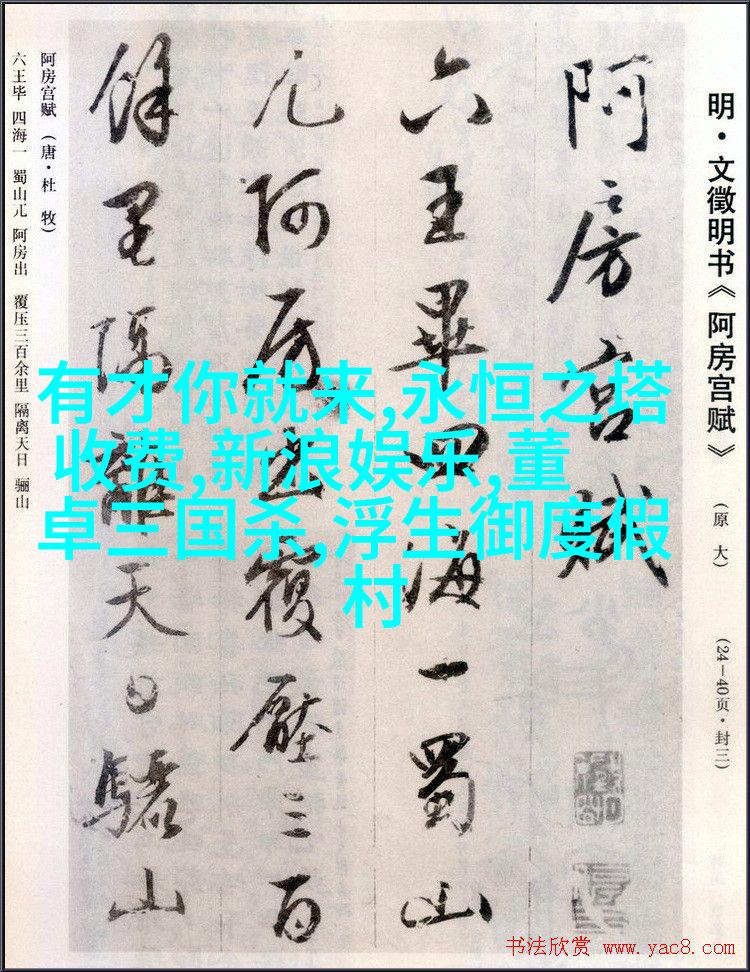 明·文徵明书《阿房宫赋》（原 大）（24—40页·封三）
阿房宮賦
六王畢四海一蜀山
兀阿房出覆壓三百
餘里隔離天日驪山
阿房宫赋（唐·杜 牧）
六王毕 四海一 蜀山兀 阿房出 覆压三百余里 隔离天日 骊山
有才你就来,永恒之塔
收费,新浪娱乐,董
卓三国杀,浮生御度假
村
书法欣赏 www.yac8.com